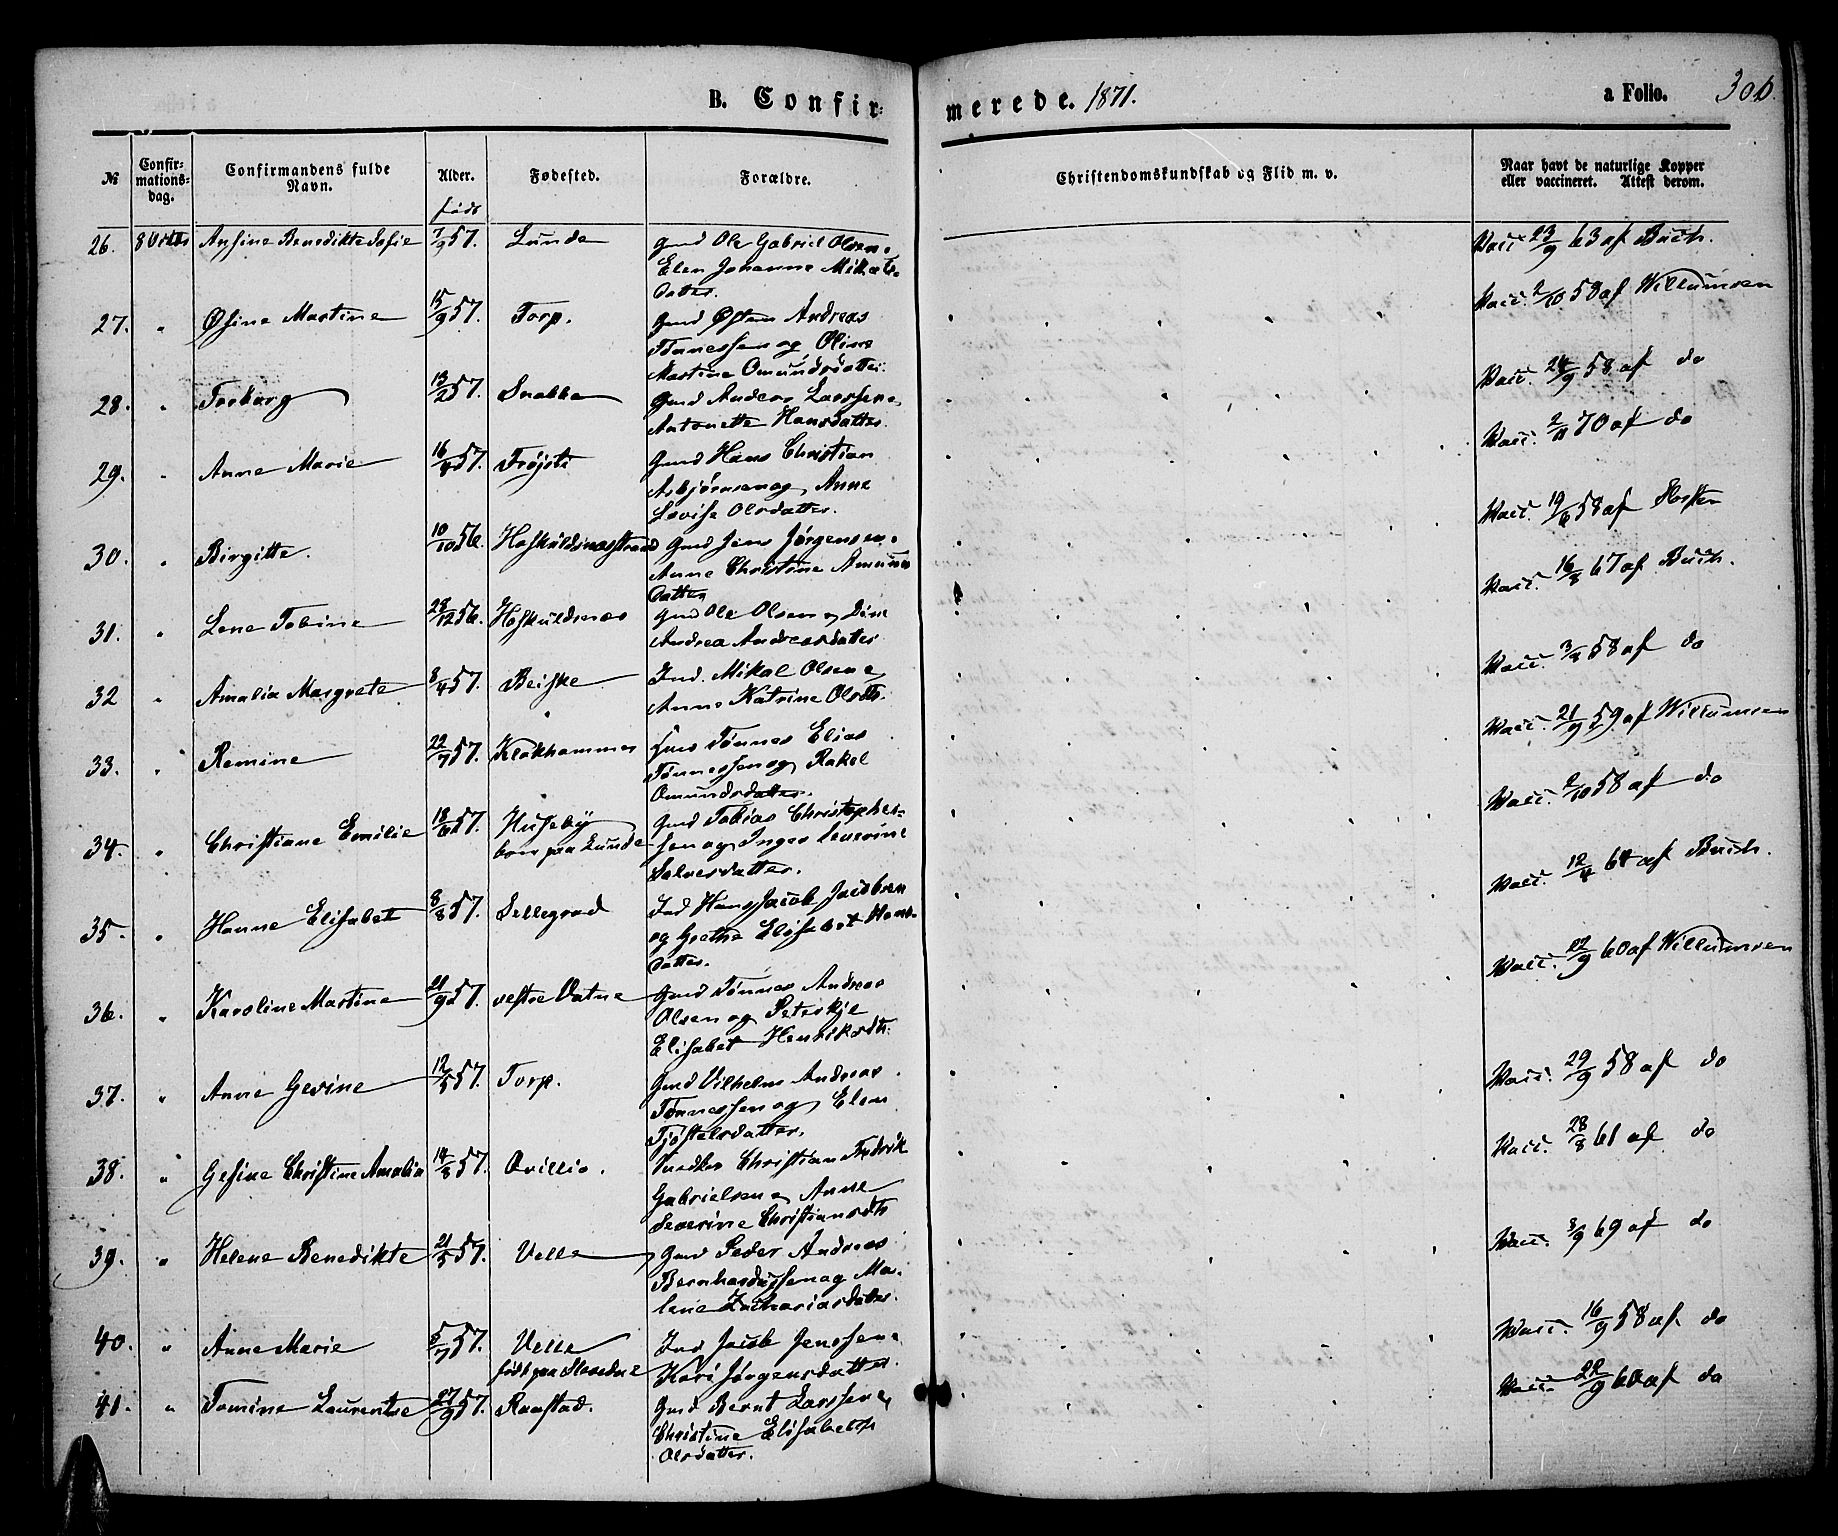 B. Confir-
merede. 1871.
a Folio. 306.
№
Confir-
mations-
dag.
Confirmandens fulde
Navn.
Alder.
født
Fødested.
Forældre.
Christendomskundskab og Flid m. v.
Naar havt de naturlige Kopper
eller vaccineret. Attest derom.
26. 8 Ansine Benedikte Sofie 7/9 57. Lunde Gmd Ole Gabriel Olsen
Elen Johanne Mikals-
datter.
Vacc. 23/9 63 af Buch.
27. " Øsine Martine 15/9 57. Torp. Gmd Østen Andreas
Tønnessen og Oline
Martine Omundsdatter
Vacc. 2/10 58 af Willumsen
28. " Torborg 13/2 57. Snabbe Gmd Anders Larssen
Antonette Hansdatter
Vacc. 24/9 58 af do
29. " Anne Marie 16/4 57. Gmd Hans Christian
Asbjørnsen og Anne
Lovise Olsdatter.
Vacc. 2/11 70 af do
30. " Birgitte. 10/10 56. Gmd Jens Jørgensen
Anne Christine
datter
Vacc. 19/6 58 af
31. " Lene Tobine 28/12 56. Gmd Ole Olsen
Andrea Andreasdatter
Vacc. 16/8 67 af Buch.
32 " Amalia Margrete 8/4 57. Beiske Ind. Mikal Olsen
Anne Katrine Olsdtr.
Vacc. 3/8 58 af do
33. " Remine 22/7 57. Klokhammer Tønnes Elias
Tønnessen og Rakel
Omundsdatter.
Vacc. 21/9 59 af Willumsen
34. " Christiane Emilie 18/6 57. Huseby
boer paa Lunde
Gmd Tobias Christophes-
sen og Inger Severine
Salvesdatter.
Vacc. 2/10 58 af do
35. " Hanne Elisabet 8/8 57. Sellegrod Ind Hans Jacob Jacobsen
og Grethe Elisabet Hans-
datter.
Vacc. 12/4 64 af Buch.
36. " Karoline Martine 21/9 57. vestre Vatne Gmd Tønnes Andreas
Olsen og Peterskje
Elisabet Henriksdtr.
Vacc. 22/9 60 af Willumsen
37. " Anne Gesine 12/5 57. Torp. Gmd Vilhelm Andreas
Tønnessen og Elen
Tjøstelsdatter.
Vacc. 29/9 58 af do
38. " Gesine Christine Amalia 14/8 57. Ovillio. Christian Fredrik
Gabrielsen Anne
Severine Christiansdtr
Vacc. 28/8 61 af do
39. " Helene Benedikte 21/5 57. Velle Gmd Peder Andreas
Bernhardussen og Ma-
lene Zachariasdatter
Vacc. 3/9 69 af do
40. " Anne Marie 5/7 57. Velle
født paa
Ind Jacob Jenssen
Kari Jørgensdatter
Vacc. 16/9 58 af do
41. " Tomine Laurentse 27/9 57. Raastad. Gmd Bernt Larssen
Christine Elisabeth
Olsdatter.
Vacc. 22/9 60 af do